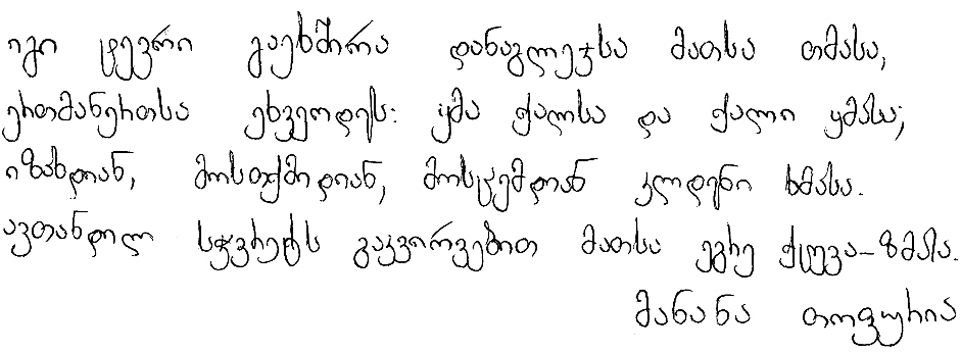 იგი ტევრი გაეხშირა დანაგლეჯსა მათსა თმასა,
ერთმანერთსა ეხვეოდეს: ყმა ქალსა და ქალი ყმასა;
იზახდიან, მოსთქმიდიან, მოსცემდიან კლდენი ხმასა.
ავთანდილ სჭვრეტს გაკვირვებით მათსა ეგრე ქცევა-ზმასა.
მანანა თოფურია